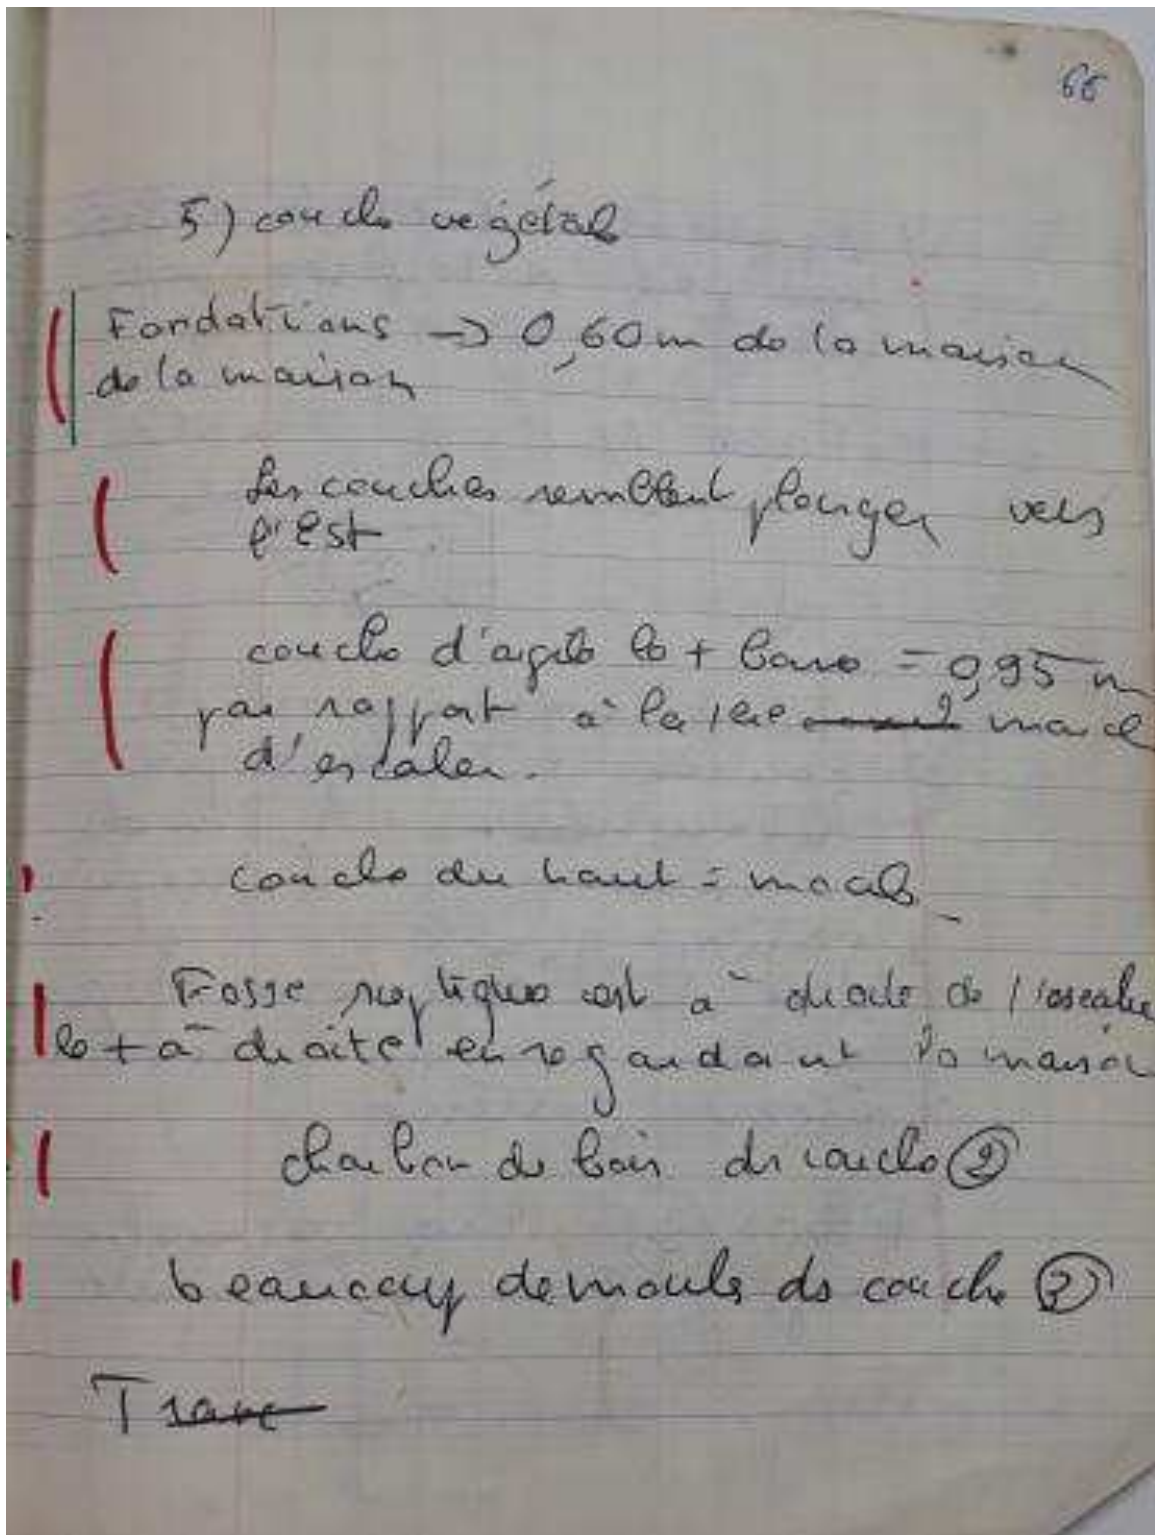 66
5) couche végétale
Fondations → 0,60m de la maison
de la maison
Les couches semblent plonger vers
l'Est
couche d'argile la + basse = 0,95 m
par rapport à la 1ère marche
d'escalier.
couche du haut =
Fosse septique est à droite de l'escalier
le + à droite en regardant la maison
charbon de bois ds couche ②
beaucoup de moules ds couche